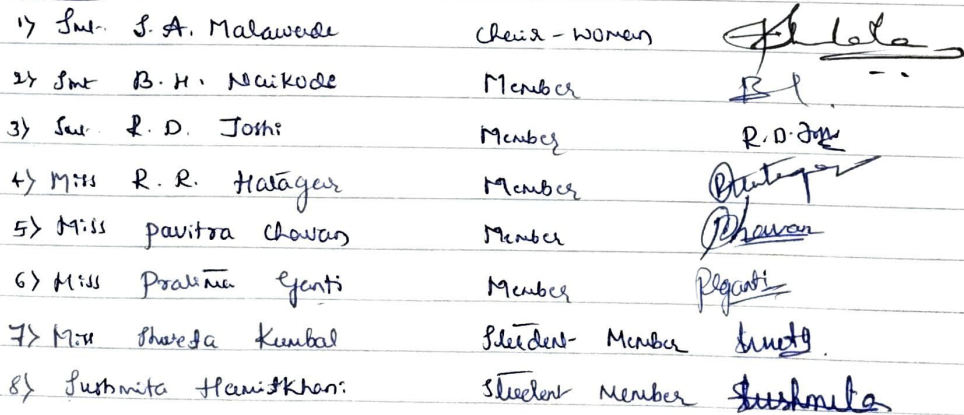 1) Smt. S. A. Malawade Chair-women
2) Smt B. H. Naikode Member
3) Smt. R. D. Joshi Member R.D. Joshi
4) Miss R. R. Hatagar Member
5) Miss Pavitra Chavan Member PChavan
6) Miss Pratima Ganti Member Pganti
7) Miss Shweta Kumbal Student- Member
8) Sushmita Student Member Sushmita